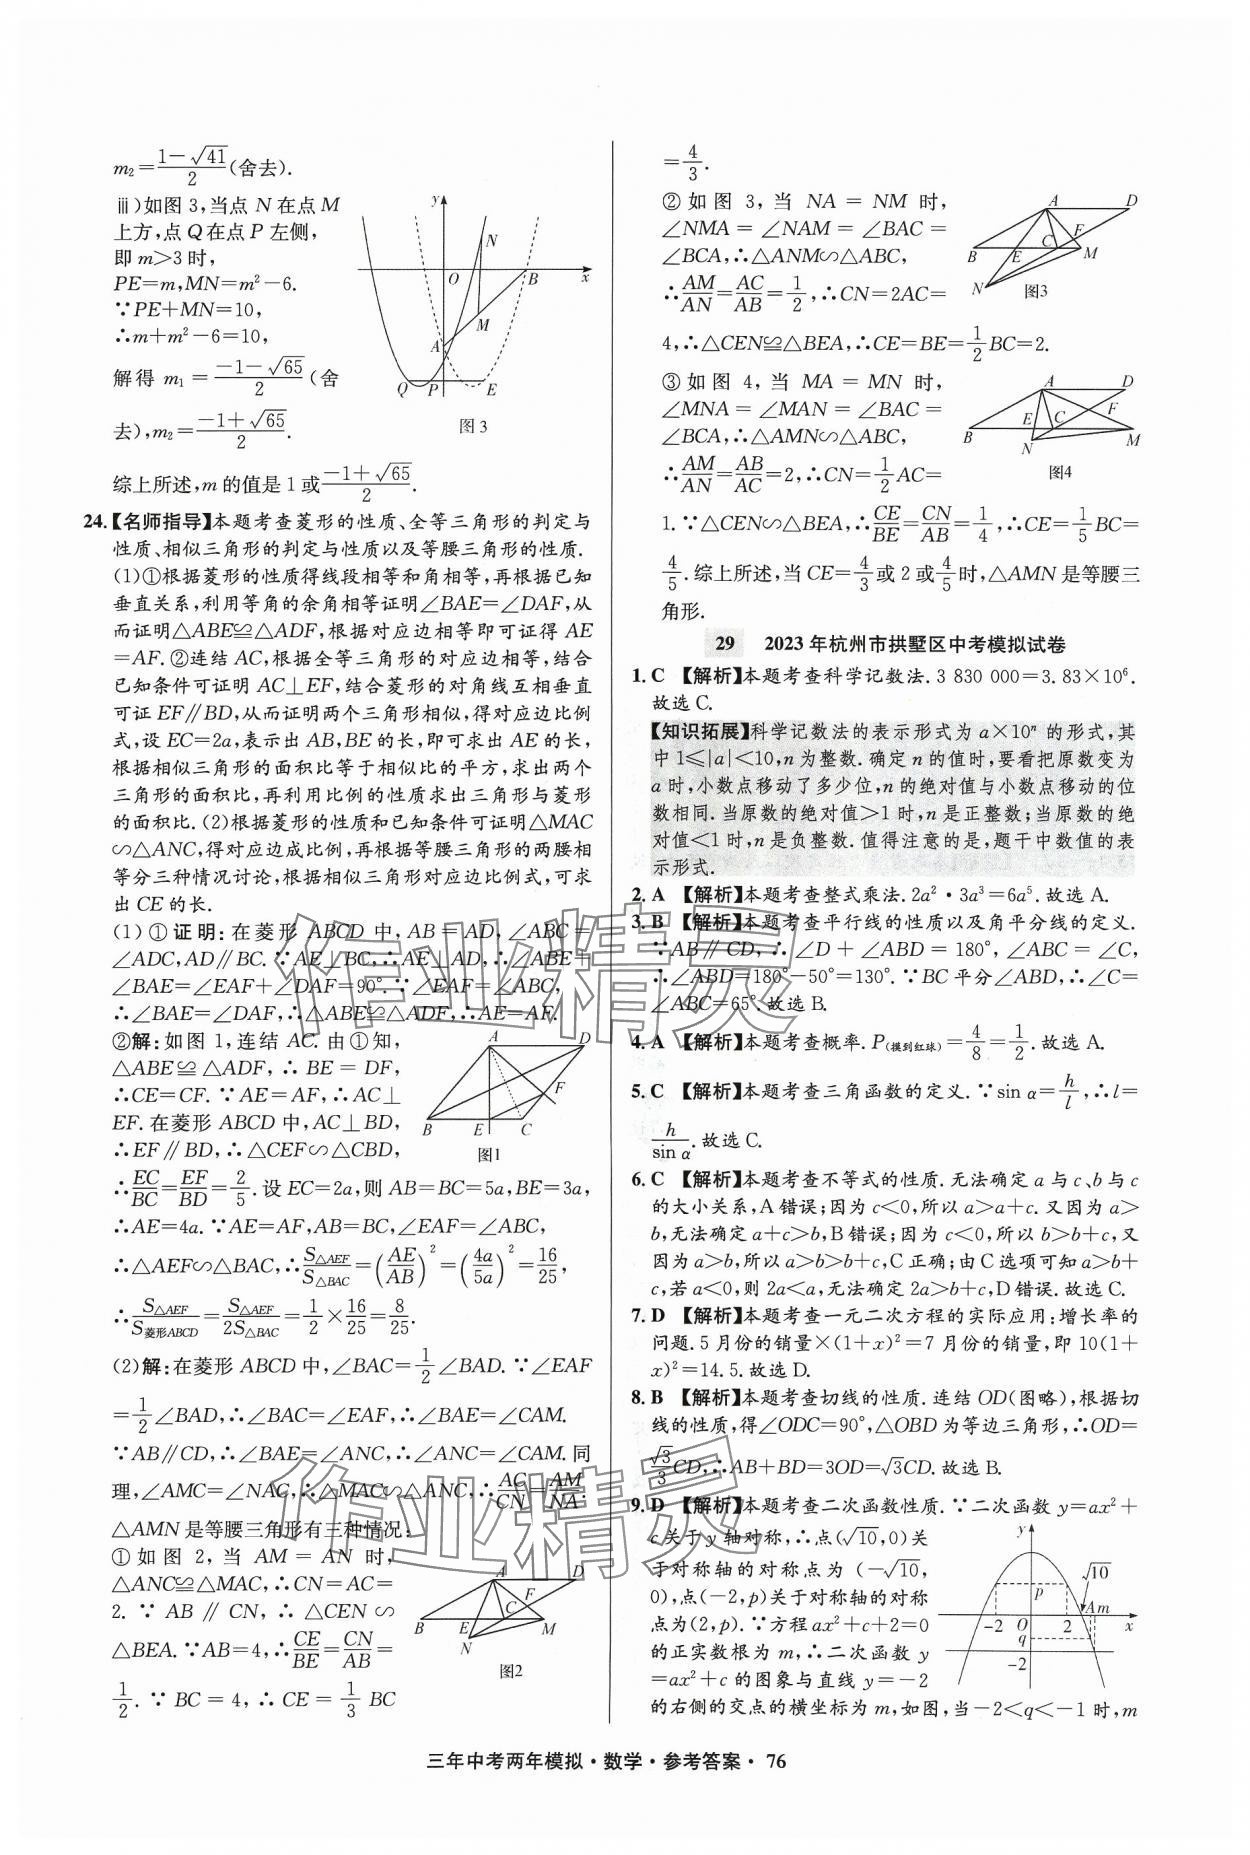 m₂=\frac{1-√41}{2}(舍去).
ⅲ)如图3,当点N在点M
上方,点Q在点P左侧,
即m>3时,
PE=m,MN=m²-6.
∵PE+MN=10,
∴m+m²-6=10,
解得 m₁=\frac{-1-√65}{2}(舍
去),m₂=\frac{-1+√65}{2}.
y
N
O
B
x
M
A
Q
P
E
图3
综上所述,m的值是1或\frac{-1+√65}{2}.
24.【名师指导】本题考查菱形的性质、全等三角形的判定与
性质、相似三角形的判定与性质以及等腰三角形的性质.
(1)①根据菱形的性质得线段相等和角相等,再根据已知
垂直关系,利用等角的余角相等证明∠BAE=∠DAF,从
而证明△ABE≌△ADF,根据对应边相等即可证得AE
=AF.②连结AC,根据全等三角形的对应边相等,结合
已知条件可证明AC⊥EF,结合菱形的对角线互相垂直
可证EF∥BD,从而证明两个三角形相似,得对应边比例
式,设EC=2a,表示出AB,BE的长,即可求出AE的长,
根据相似三角形的面积比等于相似比的平方,求出两个
三角形的面积比,再利用比例的性质求出三角形与菱形
的面积比.(2)根据菱形的性质和已知条件可证明△MAC
∽△ANC,得对应边成比例,再根据等腰三角形的两腰相
等分三种情况讨论,根据相似三角形对应边比例式,可求
出CE的长.
(1)①证明:在菱形ABCD中,AB=AD,∠ABC=
∠ADC,AD∥BC.∵AE⊥BC,∴AE⊥AD,∴∠ABE+
∠BAE=∠EAF+∠DAF=90°.∵∠EAF=∠ABC,
∴∠BAE=∠DAF,∴△ABE≌△ADF,∴AE=AF.
②解:如图1,连结AC.由①知,
△ABE≌△ADF,∴BE=DF,
∴CE=CF.∵AE=AF,∴AC⊥
EF.在菱形ABCD中,AC⊥BD,
∴EF∥BD,∴△CEF∽△CBD,
A
D
F
B
E
C
图1
∴\frac{EC}{BC}=\frac{EF}{BD}=\frac{2}{5}.设EC=2a,则AB=BC=5a,BE=3a,
∴AE=4a.∵AE=AF,AB=BC,∠EAF=∠ABC,
∴△AEF∽△BAC,∴\frac{S△AEF}{S△BAC}=(\frac{AE}{AB})²=(\frac{4a}{5a})²=\frac{16}{25},
∴\frac{S△AEF}{S菱形ABCD}=\frac{S△AEF}{2S△BAC}=\frac{1}{2}×\frac{16}{25}=\frac{8}{25}.
(2)解:在菱形ABCD中,∠BAC=\frac{1}{2}∠BAD.∵∠EAF
=\frac{1}{2}∠BAD,∴∠BAC=∠EAF,∴∠BAE=∠CAM.
∵AB∥CD,∴∠BAE=∠ANC,∴∠ANC=∠CAM.同
理,∠AMC=∠NAC,∴△MAC∽△ANC,∴\frac{AC}{CN}=\frac{AM}{NA}.
△AMN是等腰三角形有三种情况:
①如图2,当AM=AN时,
△ANC≌△MAC,∴CN=AC=
2.∵AB∥CN,∴△CEN∽
△BEA.∵AB=4,∴\frac{CE}{BE}=\frac{CN}{AB}=
\frac{1}{2}.∵BC=4,∴CE=\frac{1}{3}BC
A
D
F
B
E
C
M
N
图2
=\frac{4}{3}.
②如图3,当NA=NM时,
∠NMA=∠NAM=∠BAC=
∠BCA,∴△ANM∽△ABC,
∴\frac{AM}{AN}=\frac{AC}{AB}=\frac{1}{2},∴CN=2AC=
A
D
F
C
B
E
M
N
图3
4,∴△CEN≌△BEA,∴CE=BE=\frac{1}{2}BC=2.
③如图4,当MA=MN时,
∠MNA=∠MAN=∠BAC=
∠BCA,∴△AMN∽△ABC,
∴\frac{AM}{AN}=\frac{AB}{AC}=2,∴CN=\frac{1}{2}AC=
A
D
F
E
C
B
N
M
图4
1.∵△CEN∽△BEA,∴\frac{CE}{BE}=\frac{CN}{AB}=\frac{1}{4},∴CE=\frac{1}{5}BC=
\frac{4}{5}.综上所述,当CE=\frac{4}{3}或2或\frac{4}{5}时,△AMN是等腰三
角形.
29 2023年杭州市拱墅区中考模拟试卷
1. C 【解析】本题考查科学记数法.3 830 000=3.83×10⁶.
故选C.
【知识拓展】科学记数法的表示形式为a×10ⁿ的形式,其
中1≤|a|<10,n为整数.确定n的值时,要看把原数变为
a时,小数点移动了多少位,n的绝对值与小数点移动的位
数相同.当原数的绝对值>1时,n是正整数;当原数的绝
对值<1时,n是负整数.值得注意的是,题干中数值的表
示形式.
2. A 【解析】本题考查整式乘法.2a²·3a³=6a⁵.故选A.
3. B 【解析】本题考查平行线的性质以及角平分线的定义.
∵AB∥CD,∴∠D+∠ABD=180°,∠ABC=∠C,
∴∠ABD=180°-50°=130°.∵BC平分∠ABD,∴∠C=
∠ABC=65°.故选B.
4. A 【解析】本题考查概率.P(摸到红球)=\frac{4}{8}=\frac{1}{2}.故选A.
5. C 【解析】本题考查三角函数的定义.∵sin α=\frac{h}{l},∴l=
\frac{h}{sin α}.故选C.
6. C 【解析】本题考查不等式的性质.无法确定a与c、b与c
的大小关系,A错误;因为c<0,所以a>a+c.又因为a>
b,无法确定a+c>b,B错误;因为c<0,所以b>b+c,又
因为a>b,所以a>b>b+c,C正确;由C选项可知a>b+
c,若a<0,则2a<a,无法确定2a>b+c,D错误.故选C.
7. D 【解析】本题考查一元二次方程的实际应用:增长率的
问题.5月份的销量×(1+x)²=7月份的销量,即10(1+
x)²=14.5.故选D.
8. B 【解析】本题考查切线的性质.连结OD(图略),根据切
线的性质,得∠ODC=90°,△OBD为等边三角形,∴OD=
\frac{√3}{3}CD,∴AB+BD=3OD=√3CD.故选B.
9. D 【解析】本题考查二次函数性质.∵二次函数y=ax²+
c关于y轴对称,∴点(√10,0)关
于对称轴的对称点为(-√10,
0),点(-2,p)关于对称轴的对称
点为(2,p).∵方程ax²+c+2=0
的正实数根为m,∴二次函数y
=ax²+c的图象与直线y=-2
的右侧的交点的横坐标为m,如图,当-2<q<-1时,m
y
√10
p
A
m
-2
O
2
x
q
-2
三年中考两年模拟·数学·参考答案·76
作业精灵
作业精灵